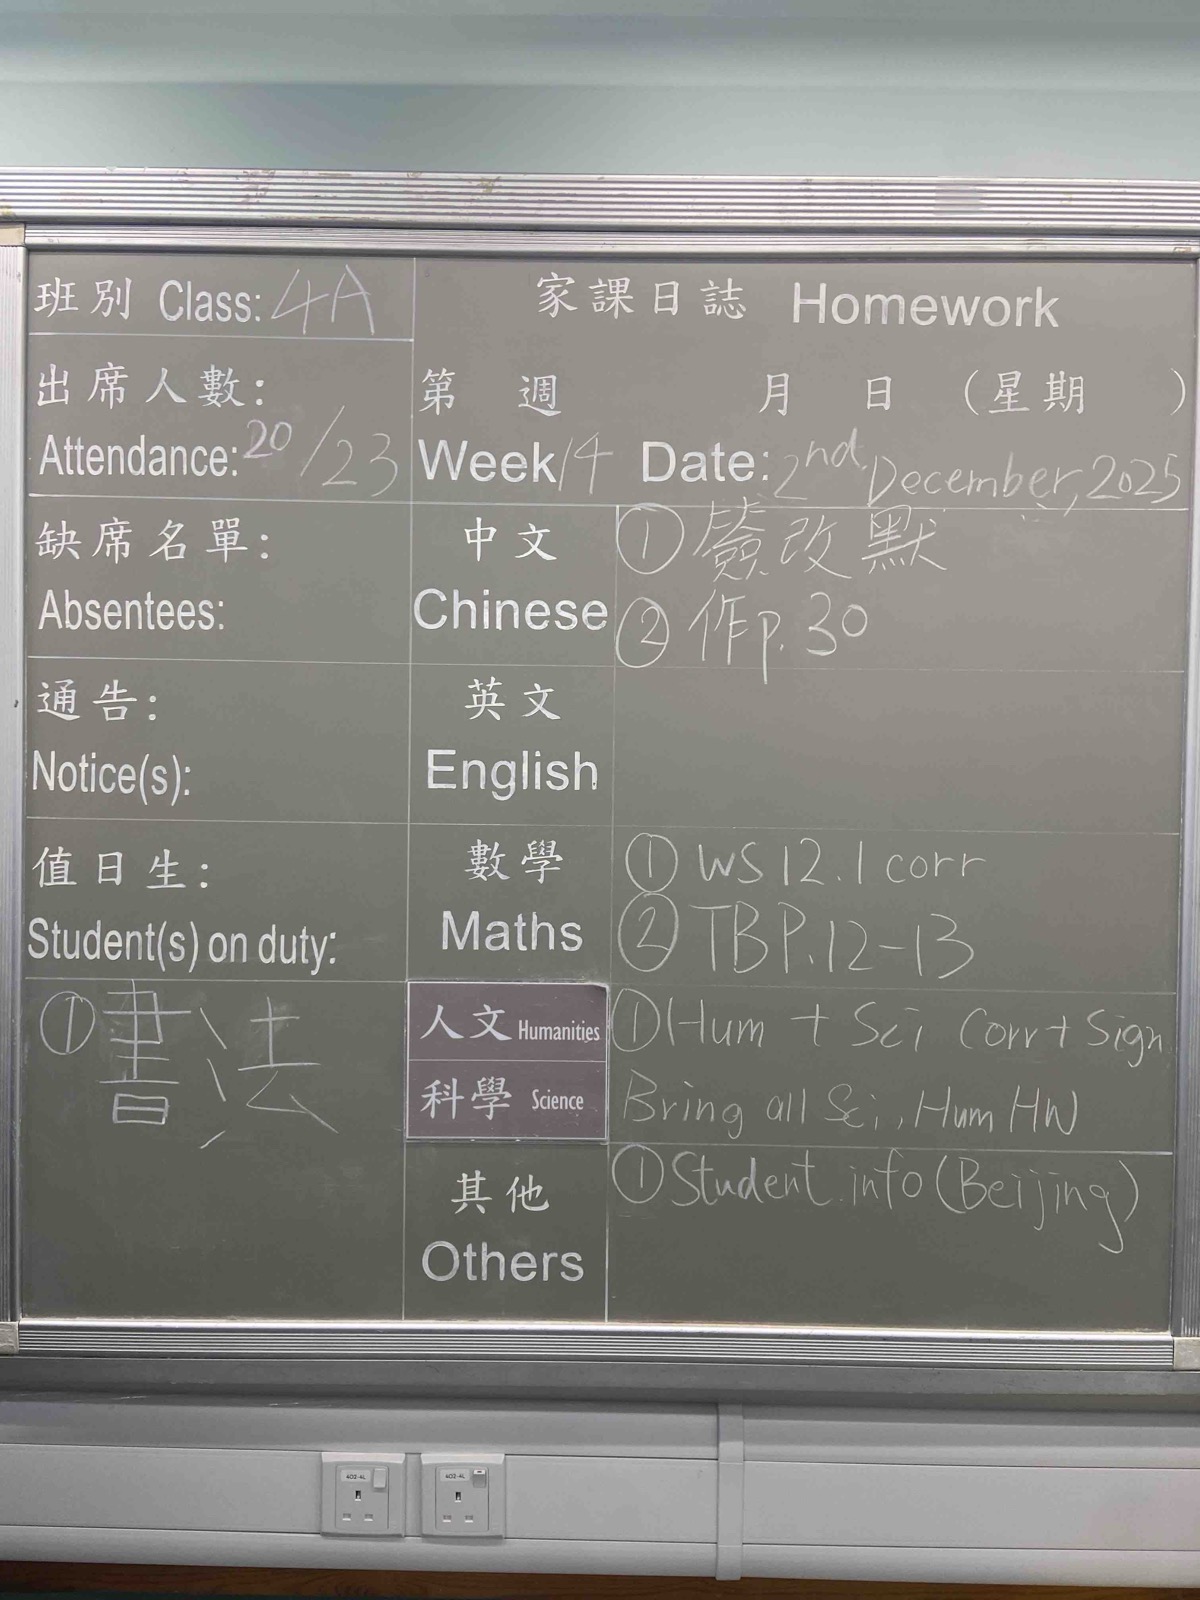 班別 Class: 4A
家課日誌 Homework
出席人數:
Attendance: 20/23
第 週 月 日 (星期 )
Week 14 Date: 2nd December, 2025
缺席名單:
Absentees:
中文
Chinese
① 簽改默
② 作p.30
通告:
Notice(s):
英文
English
值日生:
Student(s) on duty:
數學
Maths
① WS 12.1 corr
② TB P.12-13
① 書法
人文 Humanities
科學 Science
① Hum + Sci Corr + Sign
Bring all Sci, Hum HW
其他
Others
① Student info (Beijing)
402-4L
402-4L